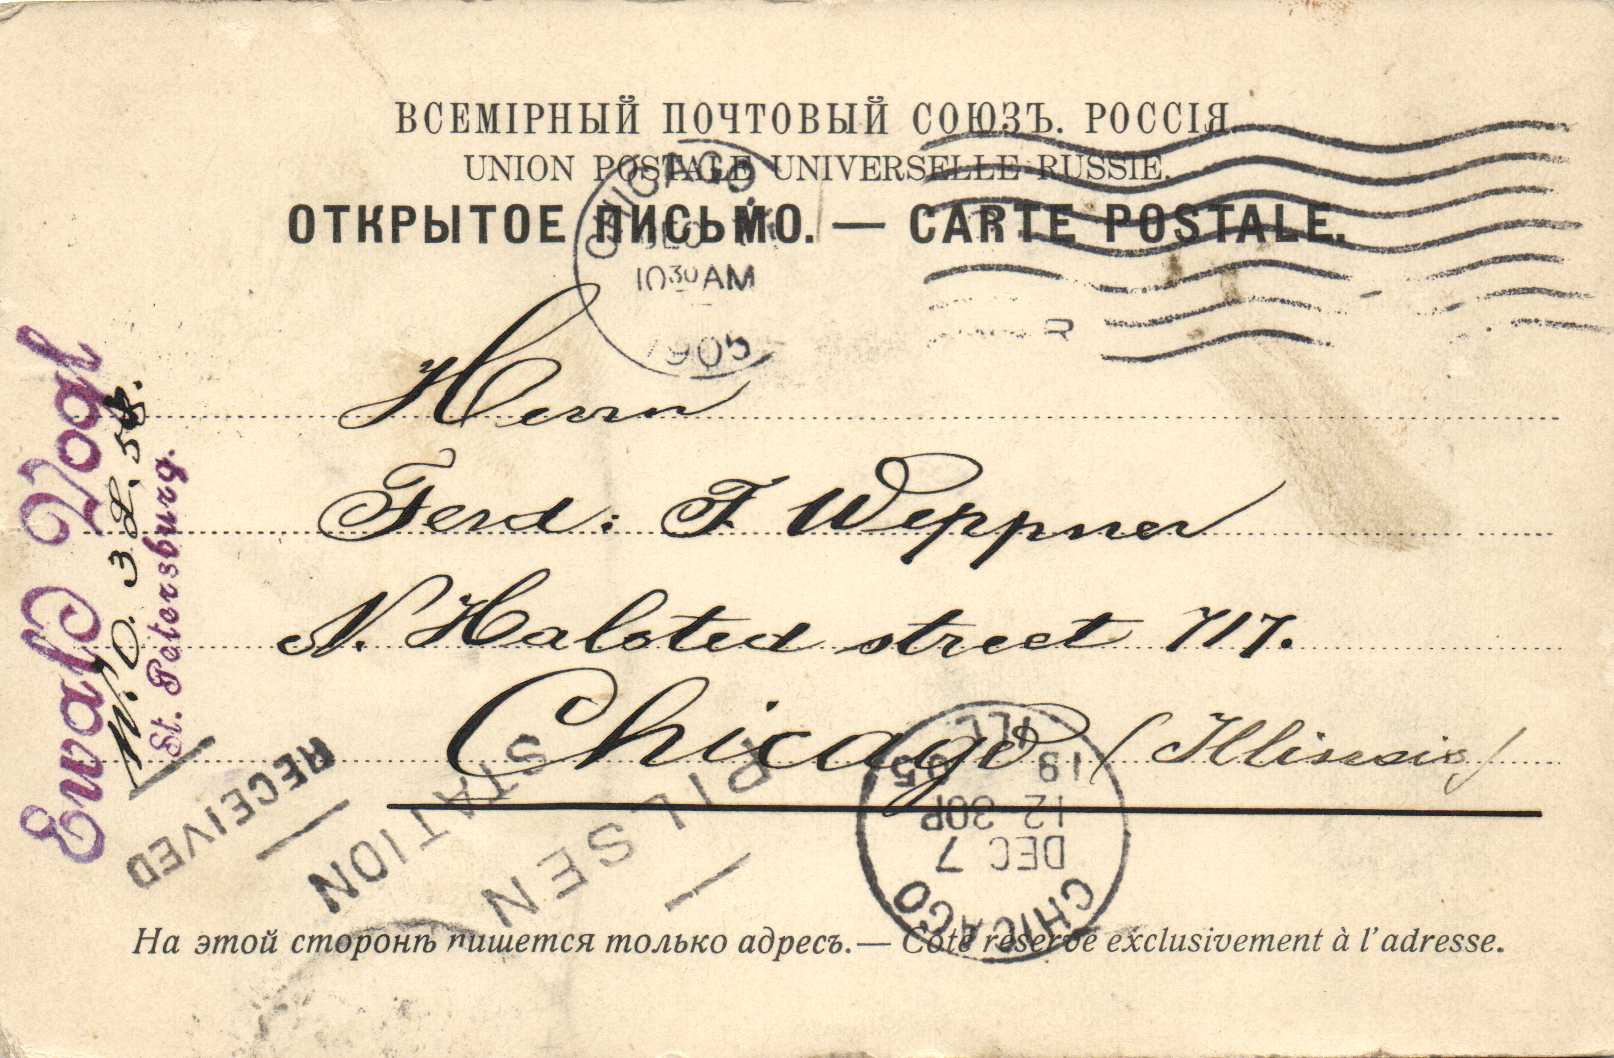 ВСЕМІРНЫЙ ПОЧТОВЫЙ СОЮЗЪ. РОССІЯ.
UNION POSTALE UNIVERSELLE RUSSIE.
ОТКРЫТОЕ ПИСЬМО. — CARTE POSTALE.
CHICAGO
DEC
10 30 AM
1905
Herrn
Ferd: F. Weppner
N. Halsted street 717.
Chicago (Illinois)
Ewald Vogl
W. O. 3 L. 58.
St. Petersburg.
RECEIVED
PILSEN
STATION
CHICAGO
DEC 7
12 30P
19 05
ILL
На этой сторонѣ пишется только адресъ.— Côté réservé exclusivement à l'adresse.